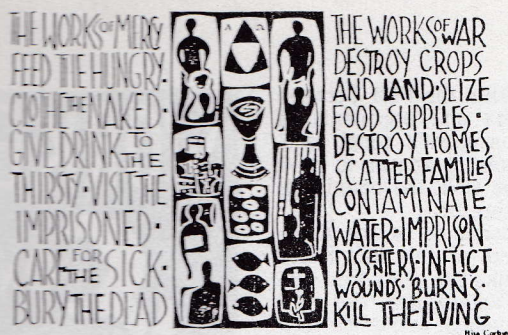 THE WORKS OF MERCY
FEED THE HUNGRY·
CLOTHE THE NAKED·
GIVE DRINK TO
THE
THIRSTY·VISIT THE
IMPRISONED·
CARE FOR THE SICK·
BURY THE DEAD
A Ω
THE WORKS OF WAR
DESTROY CROPS
AND LAND·SEIZE
FOOD SUPPLIES·
DESTROY HOMES
SCATTER FAMILIES
CONTAMINATE
WATER·IMPRISON
DISSENTERS·INFLICT
WOUNDS·BURNS·
KILL THE LIVING
Rita Corbin